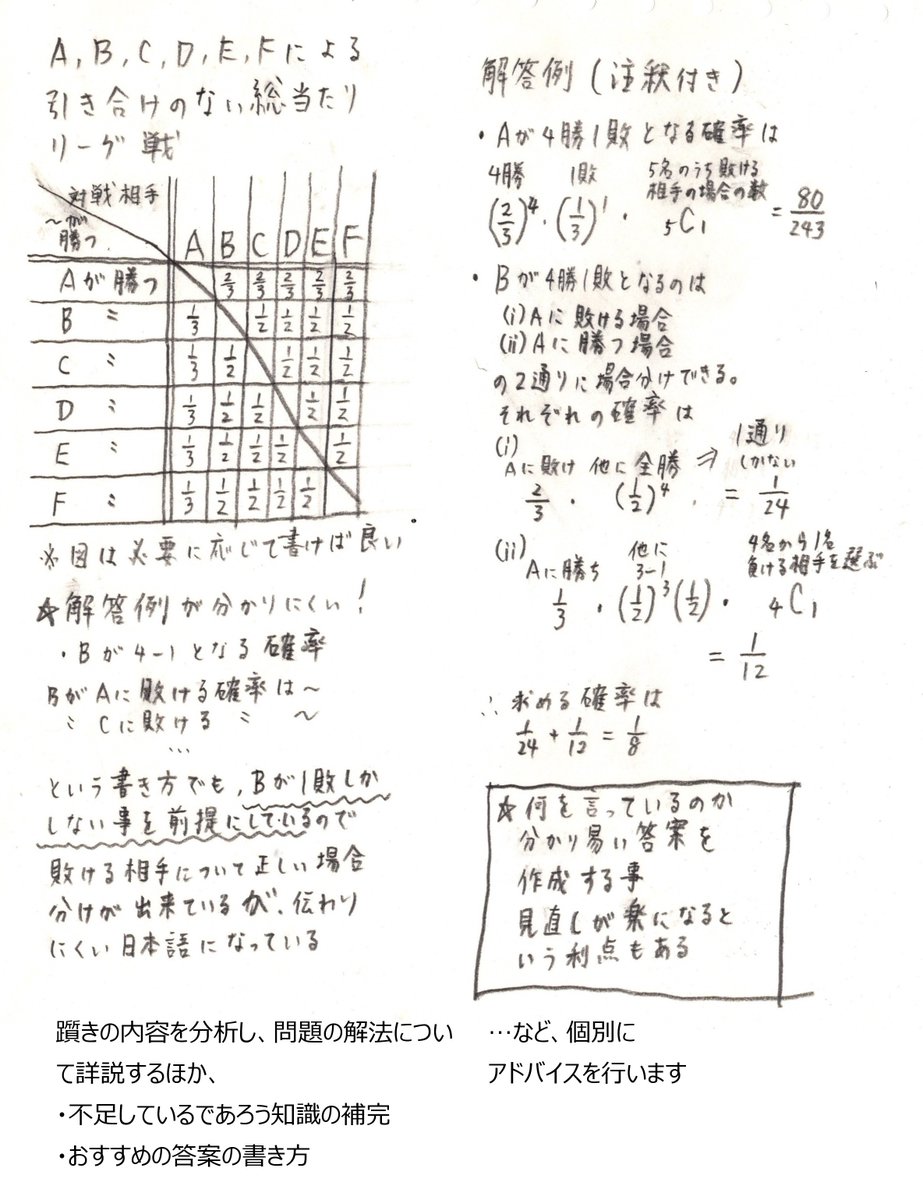 A,B,C,D,E,Fによる
引き合けのない総当たり
リーグ戦
対戦相手
〜が
勝つ
A B C D E F
Aが勝つ 2/3 2/3 2/3 2/3 2/3
B 〃 1/3 1/2 1/2 1/2 1/2
C 〃 1/3 1/2 1/2 1/2 1/2
D 〃 1/3 1/2 1/2 1/2 1/2
E 〃 1/3 1/2 1/2 1/2 1/2
F 〃 1/3 1/2 1/2 1/2 1/2
※図は必要に応じて書けば良い
☆解答例が分かりにくい!
・Bが4-1となる確率
BがAに敗ける確率は〜
〃 Cに敗ける 〃 〜
…
という書き方でも,Bが1敗しか
しない事を前提にしているので
敗ける相手について正しい場合
分けが出来ているが、伝わり
にくい日本語になっている
解答例(注釈付き)
・Aが4勝1敗となる確率は
4勝 1敗 5名のうち敗ける
相手の場合の数
(2/3)^4・(1/3)^1・5C1 = 80/243
・Bが4勝1敗となるのは
(i)Aに敗ける場合
(ii)Aに勝つ場合
の2通りに場合分けできる。
それぞれの確率は
(i)
Aに敗け 他に全勝 ⇒ 1通り
しかない
2/3・(1/2)^4. = 1/24
(ii)
Aに勝ち 他に
3-1 4名から1名
負ける相手を選ぶ
1/3・(1/2)^3(1/2)・4C1
= 1/12
∴求める確率は
1/24 + 1/12 = 1/8
☆何を言っているのか
分かり易い答案を
作成する事
見直しが楽になると
いう利点もある
躓きの内容を分析し、問題の解法につい
て詳説するほか、
・不足しているであろう知識の補完
・おすすめの答案の書き方
…など、個別に
アドバイスを行います